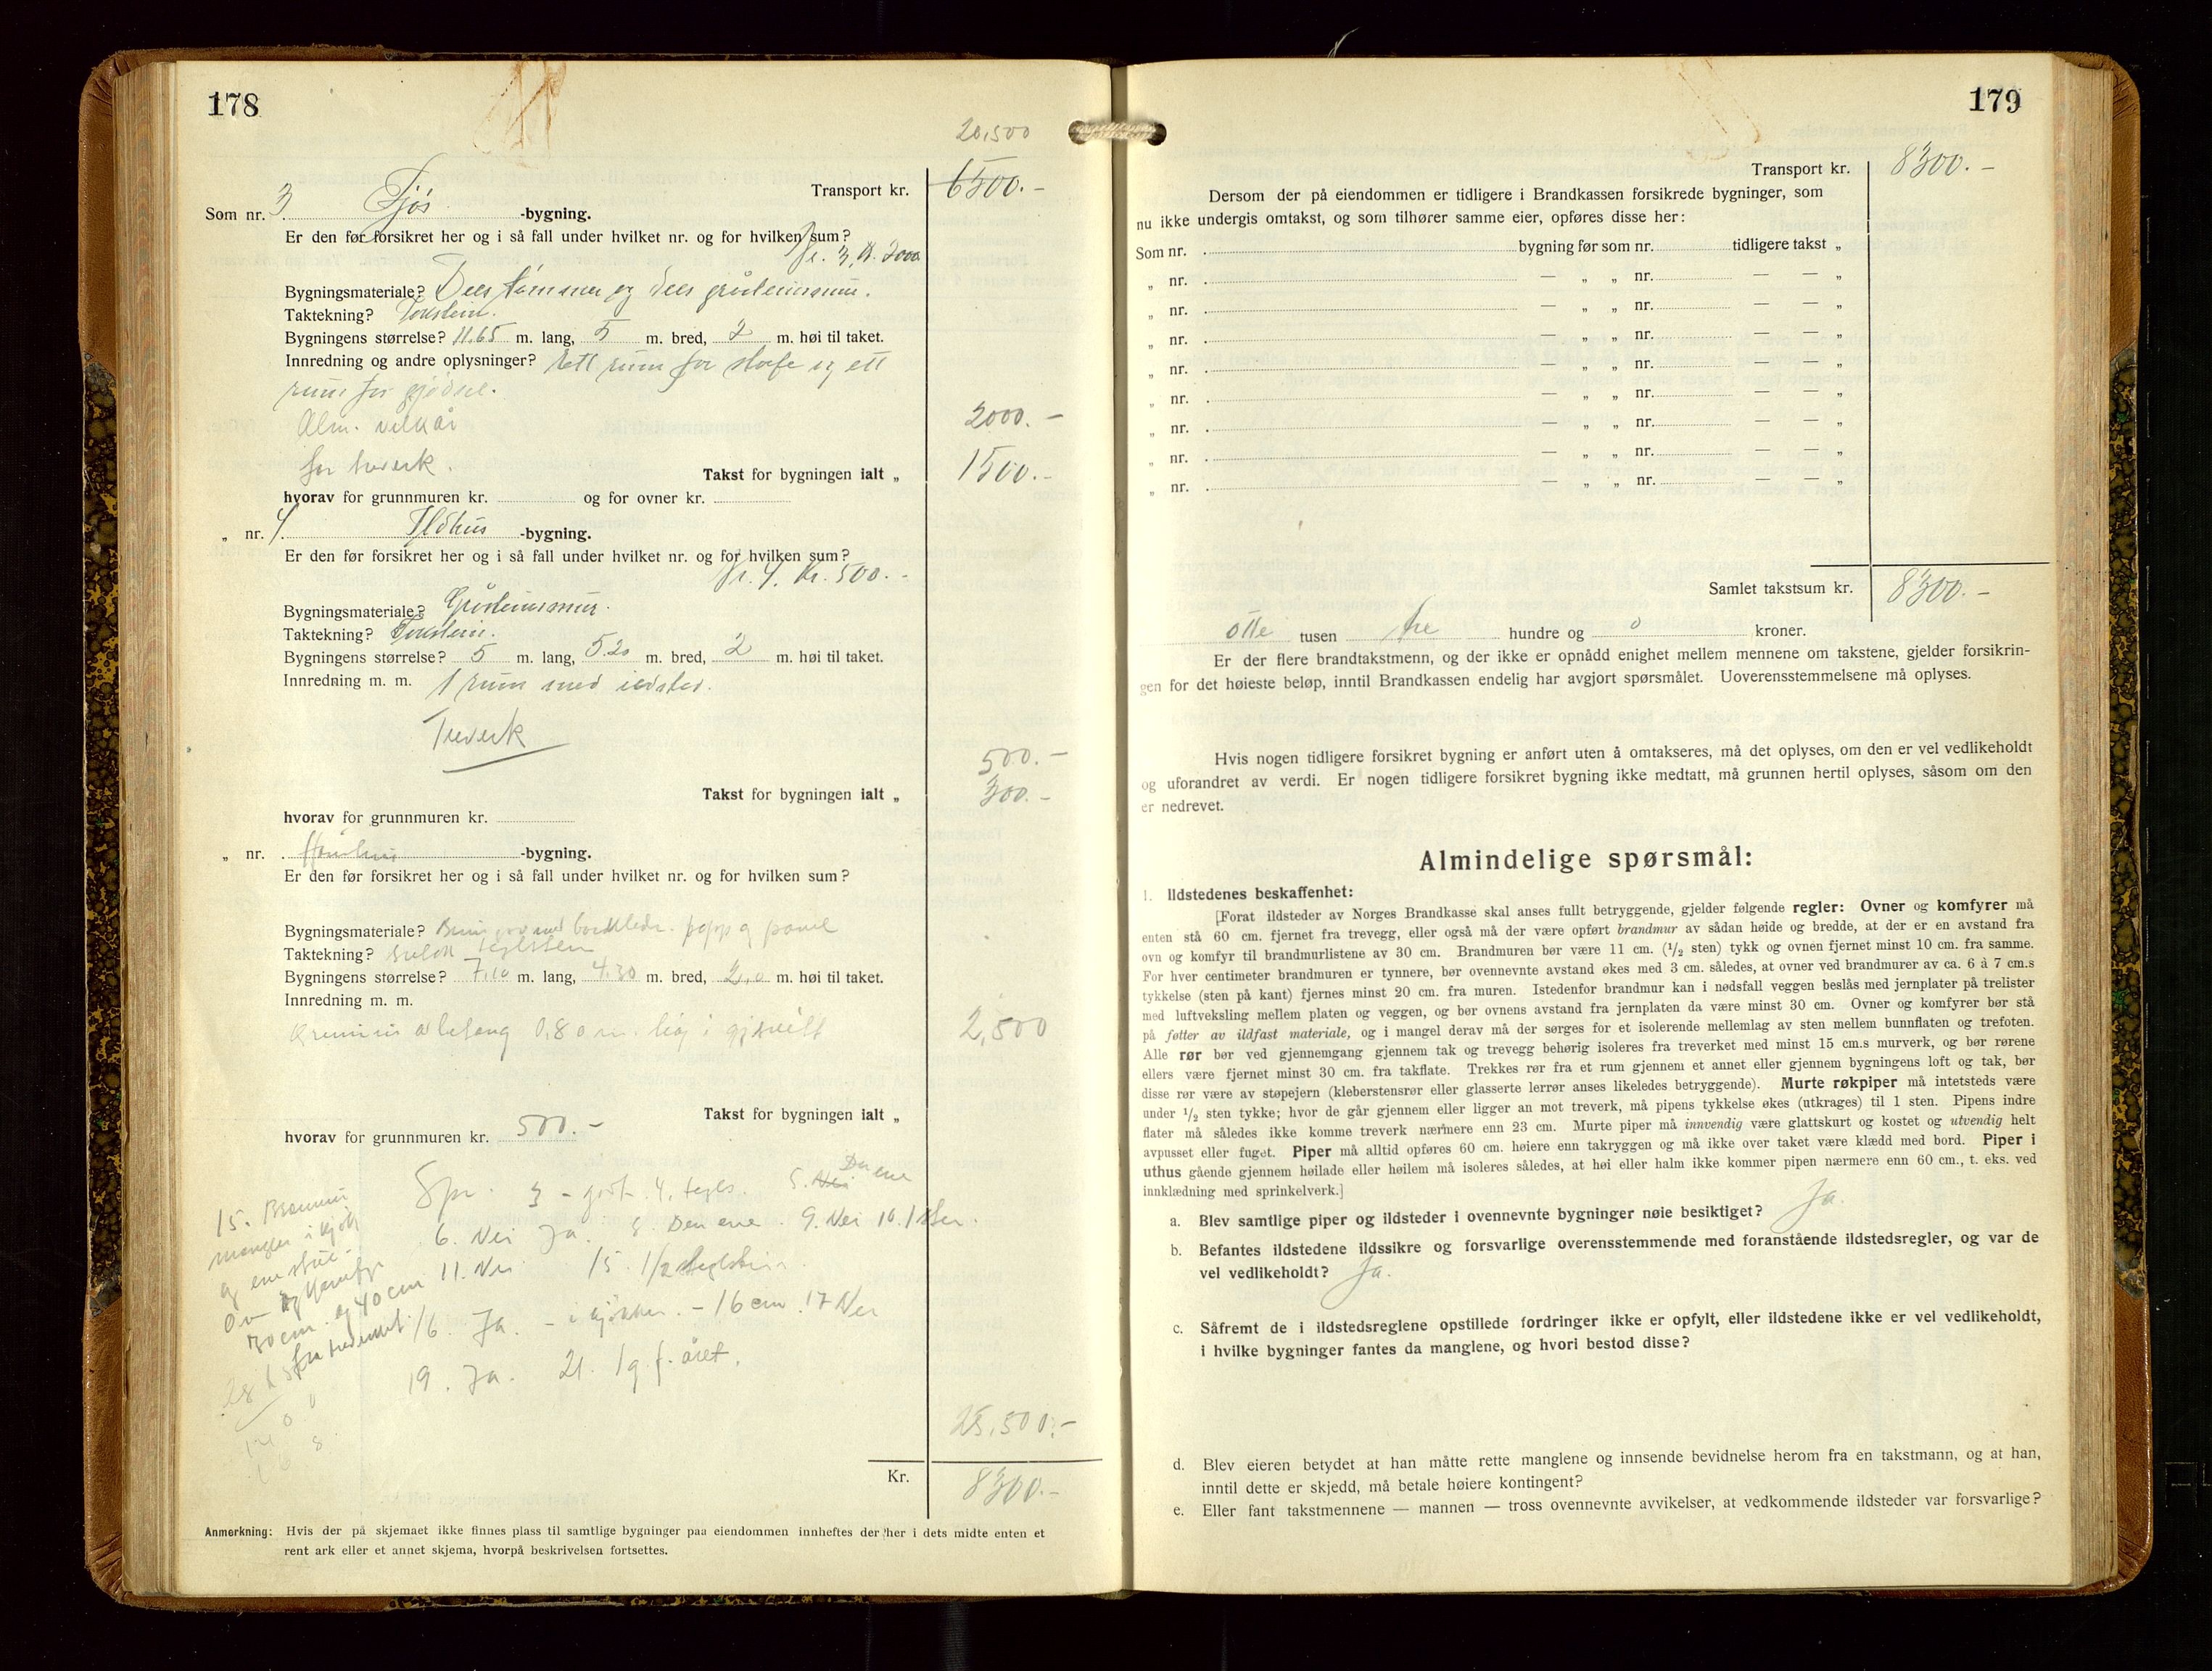 178
20,500
Transport kr. 6500.-
Som nr. 3 Fjøs -bygning.
Er den før forsikret her og i så fall under hvilket nr. og for hvilken sum?
Nr. 3, Kr. 2000
Bygningsmateriale? Dels tømmer og dels gråsteinsmur.
Taktekning? Taksten.
Bygningens størrelse? 11.65 m. lang, 5 m. bred, 2 m. høi til taket.
Innredning og andre oplysninger? Ett rum for storfe og ett
rum for gjødsel.
Alm. vilkår 2000.-
for treverk.
Takst for bygningen ialt „ 1500.-
hvorav for grunnmuren kr. og for ovner kr.
„ nr. 4. Ildhus -bygning.
Er den før forsikret her og i så fall under hvilket nr. og for hvilken sum?
Nr. 4. Kr. 500.-
Bygningsmateriale? Gråsteinsmur.
Taktekning? Taksten.
Bygningens størrelse? 5 m. lang, 5.20 m. bred, 2 m. høi til taket.
Innredning m. m. 1 rum med ildsted.
Treverk
500.-
Takst for bygningen ialt „ 300.-
hvorav for grunnmuren kr.
„ nr. -bygning.
Er den før forsikret her og i så fall under hvilket nr. og for hvilken sum?
Bygningsmateriale? papp og panel
Taktekning? teglsten
Bygningens størrelse? 7,10 m. lang, 4.30 m. bred, 2,0 m. høi til taket.
Innredning m. m.
0,80 m. 2,500
Takst for bygningen ialt „
hvorav for grunnmuren kr. 500.-
Spr. 3 - godt. 4. tegls. 5. Nei Den ene
6. Nei Ja. 8. Den ene. 9. Nei 10.
11. Nei 15. 1/2 teglstein.
16. Ja. - i kjøkken. - 16 cm. 17 Nei
19. Ja. 21. 1 g. f. året.
15. Brannmur
mangler i kjøk
og ene stue.
Ov og komfyr
70 cm. og 40 cm
fra treverket.
25,500.-
Kr. 8300.-
Anmerkning: Hvis der på skjemaet ikke finnes plass til samtlige bygninger paa eiendommen innheftes der her i dets midte enten et
rent ark eller et annet skjema, hvorpå beskrivelsen fortsettes.
179
Transport kr. 8300.-
Dersom der på eiendommen er tidligere i Brandkassen forsikrede bygninger, som
nu ikke undergis omtakst, og som tilhører samme eier, opføres disse her:
Som nr. bygning før som nr. tidligere takst „
„ nr. — „ „ nr. — — „
„ nr. — „ „ nr. — — „
„ nr. — „ „ nr. — — „
„ nr. — „ „ nr. — — „
„ nr. — „ „ nr. — — „
„ nr. — „ „ nr. — — „
„ nr. — „ „ nr. — — „
„ nr. — „ „ nr. — — „
Samlet takstsum kr. 8300.-
otte tusen tre hundre og o kroner.
Er der flere brandtakstmenn, og der ikke er opnådd enighet mellem mennene om takstene, gjelder forsikrin-
gen for det høieste beløp, inntil Brandkassen endelig har avgjort spørsmålet. Uoverensstemmelsene må oplyses.
Hvis nogen tidligere forsikret bygning er anført uten å omtakseres, må det oplyses, om den er vel vedlikeholdt
og uforandret av verdi. Er nogen tidligere forsikret bygning ikke medtatt, må grunnen hertil oplyses, såsom om den
er nedrevet.
Almindelige spørsmål:
1. Ildstedenes beskaffenhet:
[Forat ildsteder av Norges Brandkasse skal anses fullt betryggende, gjelder følgende regler: Ovner og komfyrer må
enten stå 60 cm. fjernet fra trevegg, eller også må der være opført brandmur av sådan høide og bredde, at der er en avstand fra
ovn og komfyr til brandmurlistene av 30 cm. Brandmuren bør være 11 cm. (1/2 sten) tykk og ovnen fjernet minst 10 cm. fra samme.
For hver centimeter brandmuren er tynnere, bør ovennevnte avstand økes med 3 cm. således, at ovner ved brandmurer av ca. 6 à 7 cm.s
tykkelse (sten på kant) fjernes minst 20 cm. fra muren. Istedenfor brandmur kan i nødsfall veggen beslås med jernplater på trelister
med luftveksling mellem platen og veggen, og bør ovnens avstand fra jernplaten da være minst 30 cm. Ovner og komfyrer bør stå
på føtter av ildfast materiale, og i mangel derav må der sørges for et isolerende mellemlag av sten mellem bunnflaten og trefoten.
Alle rør bør ved gjennemgang gjennem tak og trevegg behørig isoleres fra treverket med minst 15 cm.s murverk, og bør rørene
ellers være fjernet minst 30 cm. fra takflate. Trekkes rør fra et rum gjennem et annet eller gjennem bygningens loft og tak, bør
disse rør være av støpejern (kleberstensrør eller glasserte lerrør anses likeledes betryggende). Murte røkpiper må intetsteds være
under 1/2 sten tykke; hvor de går gjennem eller ligger an mot treverk, må pipens tykkelse økes (utkrages) til 1 sten. Pipens indre
flater må således ikke komme treverk nærmere enn 23 cm. Murte piper må innvendig være glattskurt og kostet og utvendig helt
avpusset eller fuget. Piper må alltid opføres 60 cm. høiere enn takryggen og må ikke over taket være klædd med bord. Piper i
uthus gående gjennem høilade eller høilem må isoleres således, at høi eller halm ikke kommer pipen nærmere enn 60 cm., t. eks. ved
innklædning med sprinkelverk.]
a. Blev samtlige piper og ildsteder i ovennevnte bygninger nøie besiktiget? Ja.
b. Befantes ildstedene ildssikre og forsvarlige overensstemmende med foranstående ildstedsregler, og var de
vel vedlikeholdt? Ja.
c. Såfremt de i ildstedsreglene opstillede fordringer ikke er opfylt, eller ildstedene ikke er vel vedlikeholdt,
i hvilke bygninger fantes da manglene, og hvori bestod disse?
d. Blev eieren betydet at han måtte rette manglene og innsende bevidnelse herom fra en takstmann, og at han,
inntil dette er skjedd, må betale høiere kontingent?
e. Eller fant takstmennene — mannen — tross ovennevnte avvikelser, at vedkommende ildsteder var forsvarlige?